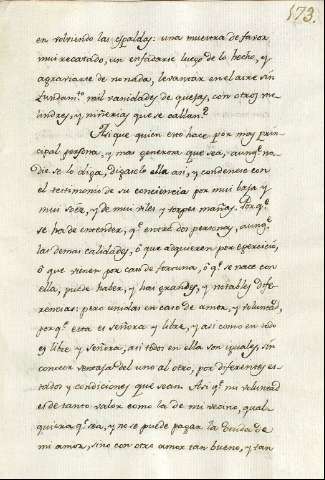 173.
en volviendo las espaldas: una muestra de favor
mui recatado, un enfadarse luego de lo hecho, y
agraviarse de no nada, levantar en el aire sin
fundam.to mil vanidades de quejas, con otros me
lindres, y miserias que se callan.
Asi que quien esto hace por mas prin
cipal persona, y mas generosa que sea, aunq.e na
die se lo diga, digaselo ella asi, y condenese con
el testimonio de su conciencia por mui baja y
mui soez, y de mui viles y torpes mañas. Porq.e
se ha de entender, q.e entre dos personas, aunq.e
las demas calidades, ó que adquieren por egercicio,
ó que vienen por caso de fortuna, ó q.e se nace con
ella, puede haber, y hai grandes, y notables dife
rencias: pero unidas en caso de amor, y voluntad,
porq.e esta es señora y libre, y asi como en todo
es libre y señora, asi todos en ella son iguales, sin
conocer ventaja del uno al otro, por diferentes es
tados y condiciones que sean. Asi q.e mi voluntad
es de tanto valor como la de mi vecino, qual
quiera q.e sea, y no se puede pagar la deuda de
mi amor, sino con otro amor tan bueno, y tan